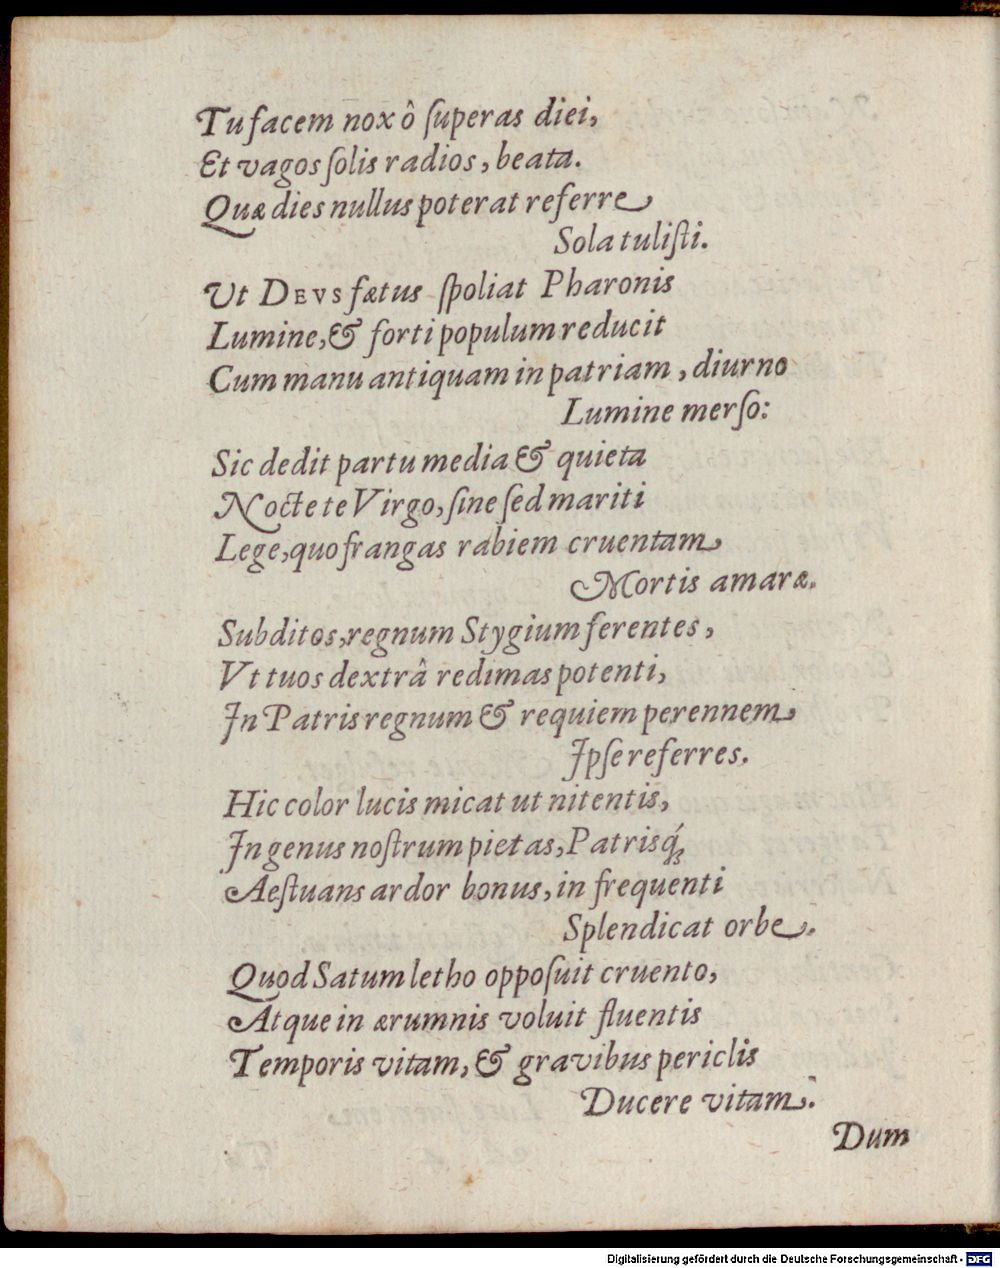 Tu facem nox ô ſuperas diei,
Et vagos ſolis radios, beata.
Quæ dies nullus poterat referre
Sola tuliſti.
Ut DEVS fætus ſpoliat Pharonis
Lumine, & forti populum reducit
Cum manu antiquam in patriam, diurno
Lumine merſo:
Sic dedit partu media & quieta
Nocte te Virgo, ſine ſed mariti
Lege, quo frangas rabiem cruentam
Mortis amaræ.
Subditos, regnum Stygium ferentes,
Vt tuos dextrâ redimas potenti,
In Patris regnum & requiem perennem
Ipſe referres.
Hic color lucis micat ut nitentis,
In genus noſtrum pietas, Patrisq́;
Aeſtuans ardor bonus, in frequenti
Splendicat orbe.
Quod Satum letho oppoſuit cruento,
Atque in ærumnis voluit fluentis
Temporis vitam, & gravibus periclis
Ducere vitam.
Dum
Digitalisierung gefördert durch die Deutsche Forschungsgemeinschaft - DFG